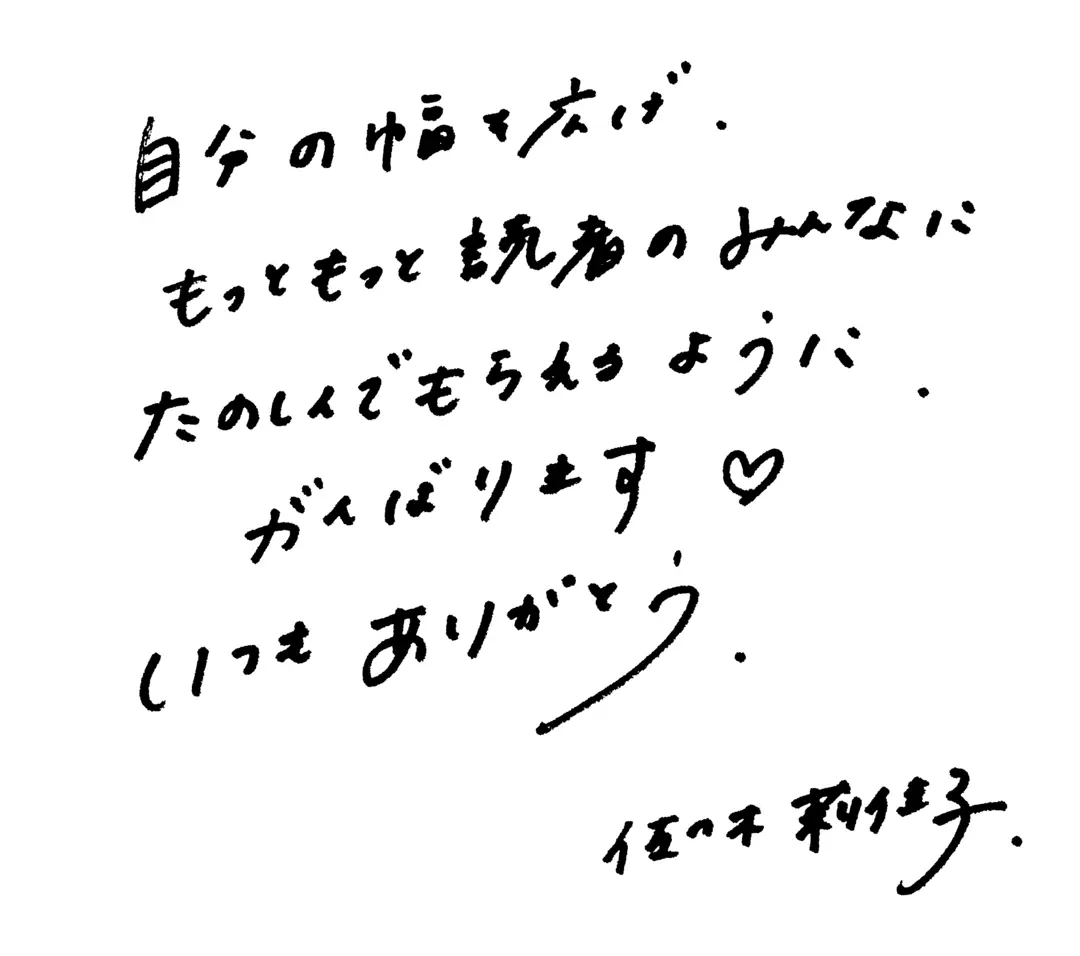 自分の幅を広げ.
もっともっと読者のみんなに
たのしんでもらえるように.
がんばります♡
いつも ありがとう.
佐々木 莉佳子.